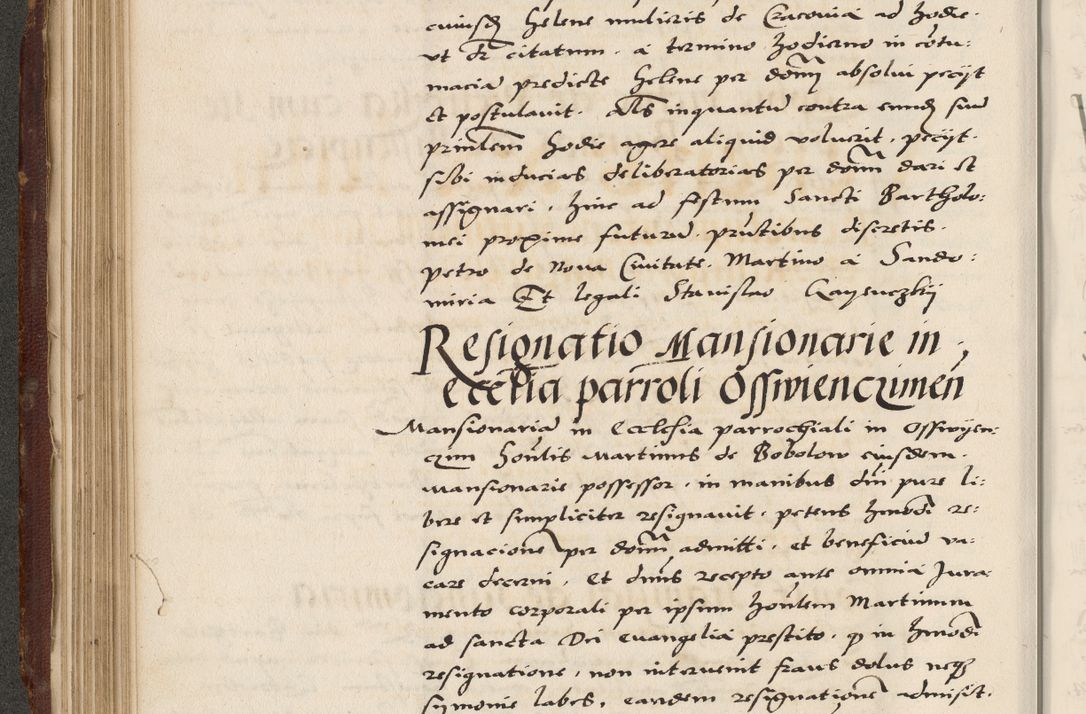 cuiusdem Helene mulieris de Cracovia ad hodie
ut dr citatum · a termino hodierno in cotu:
macia predicte Helene per domm absolvi peciit
et postulavit · Als inquantu contra eundem suu
prinlem hodie agere aliquid voluerit · peciit
sibi inducias deliberatorias per domm dari et
assignari · hinc ad festum Sancti Bartholo:
mei proxime futuru · pntibus discretis ·
petro de Nova Civitate · Martino a Sando:
miria Et legali Stanislao
Resignatio Mansionarie in
eccelia parroli Osswienczimen
Mansionaria in Ecclesia parrochiali in Osswyen:
czim honlis Martinus de Bobolow eiusdem
Mansionarie possessor · in manibus dni pure li:
bere et simpliciter resignavit · petens hmodi re:
signacione per domm admitti · et beneficiu va:
care decerni · Et dnus recepto ante omnia Jura:
mento corporali per ipsum honlem Martinum
ad sancta Dei evangelia prestito · q in hmodi
resignatione · non intervenit fraus dolus neqz
symonie labes · eandem resignatione admisit ·